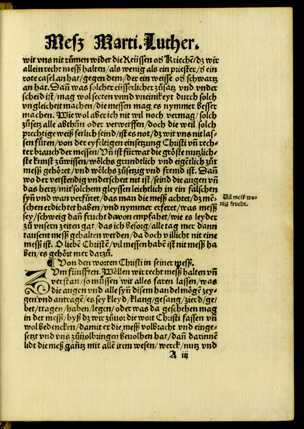 Meß Marti. Luther.
wir vns nit rümen wider die Reüssen oß Kriechē/ dz wir
allein recht meß halten/ als wenig als ein priester/ ð ein
rote casel an hat/ gegen dem/ der ein weisse oð schwartz
an hat. Dañ was solcher eüsserlicher züsatz vnd vnder
scheid ist/ mag wol secten vnd vneinikeyt durch solch
vngleicheit machen/ die messen mag es nymmer besser
machen. Wie wol aber ich nit wil noch vermag/ solch
züsetz alle abthün oder verwerffen/ doch die weil solch
prechtige weiß ferlich seind/ ist es not/ dz wir vns nit las-
sen füren/ von der eyfeltigen einsetzung Christi vñ rech-
ter brauch der messen. Vñ ist für war die gröste nutzlich-
ste kunst zü wissen/ wölchs grundtlich vnd eigētlich zür
meß gehöret/ vnd wölchs züsetzig vnd fremd ist. Dañ
wo der verstendig vnderscheit nit ist/ seind die augen vñ
das hertz/ mit solchem gleyssen leichtlich in ein falschen
syñ vnd wan verfüret/ das man die meß achtet/ dz mē-
schen edichtet haben/ vnd nymmer erferet/ was messz
sey/ schweig dañ frucht davon empfahet/ wie es leyder
zü vnsern zeiten gat/ das ich besorg/ alle tag mer dann
tausent meß gehalten werden/ da doch villicht nit eine
meß ist. O liebē Christē/ vil messen habē ist nit meß ha
ben/ es gehört mer darzü.
Dil meß we-
nig frucht.
¶ Von den worten Christi in seiner messz.
Zvm fünfften. Wöllen wir recht meß halten vñ
verstan/ so müssen wir alles faren lassen/ was
die augen vnd alle syñ in disem handel mögē zey-
gen vnd antragē/ es sey kleyd/ klang/ gesang/ zierd/ ge-
bet/ tragen/ haben/ legen/ oder was da geschehen mag
in der meß/ byß dz wir züuor die wort Christi fassen vñ
wol bedencken/ damit er die meß volbracht vnd einge-
setzt vnd vns züuolbringen beuolhen hat/ dañ darinnē
ligt die meß gantz mit alle irem wesen/ werck/ nutz vnd
A iij